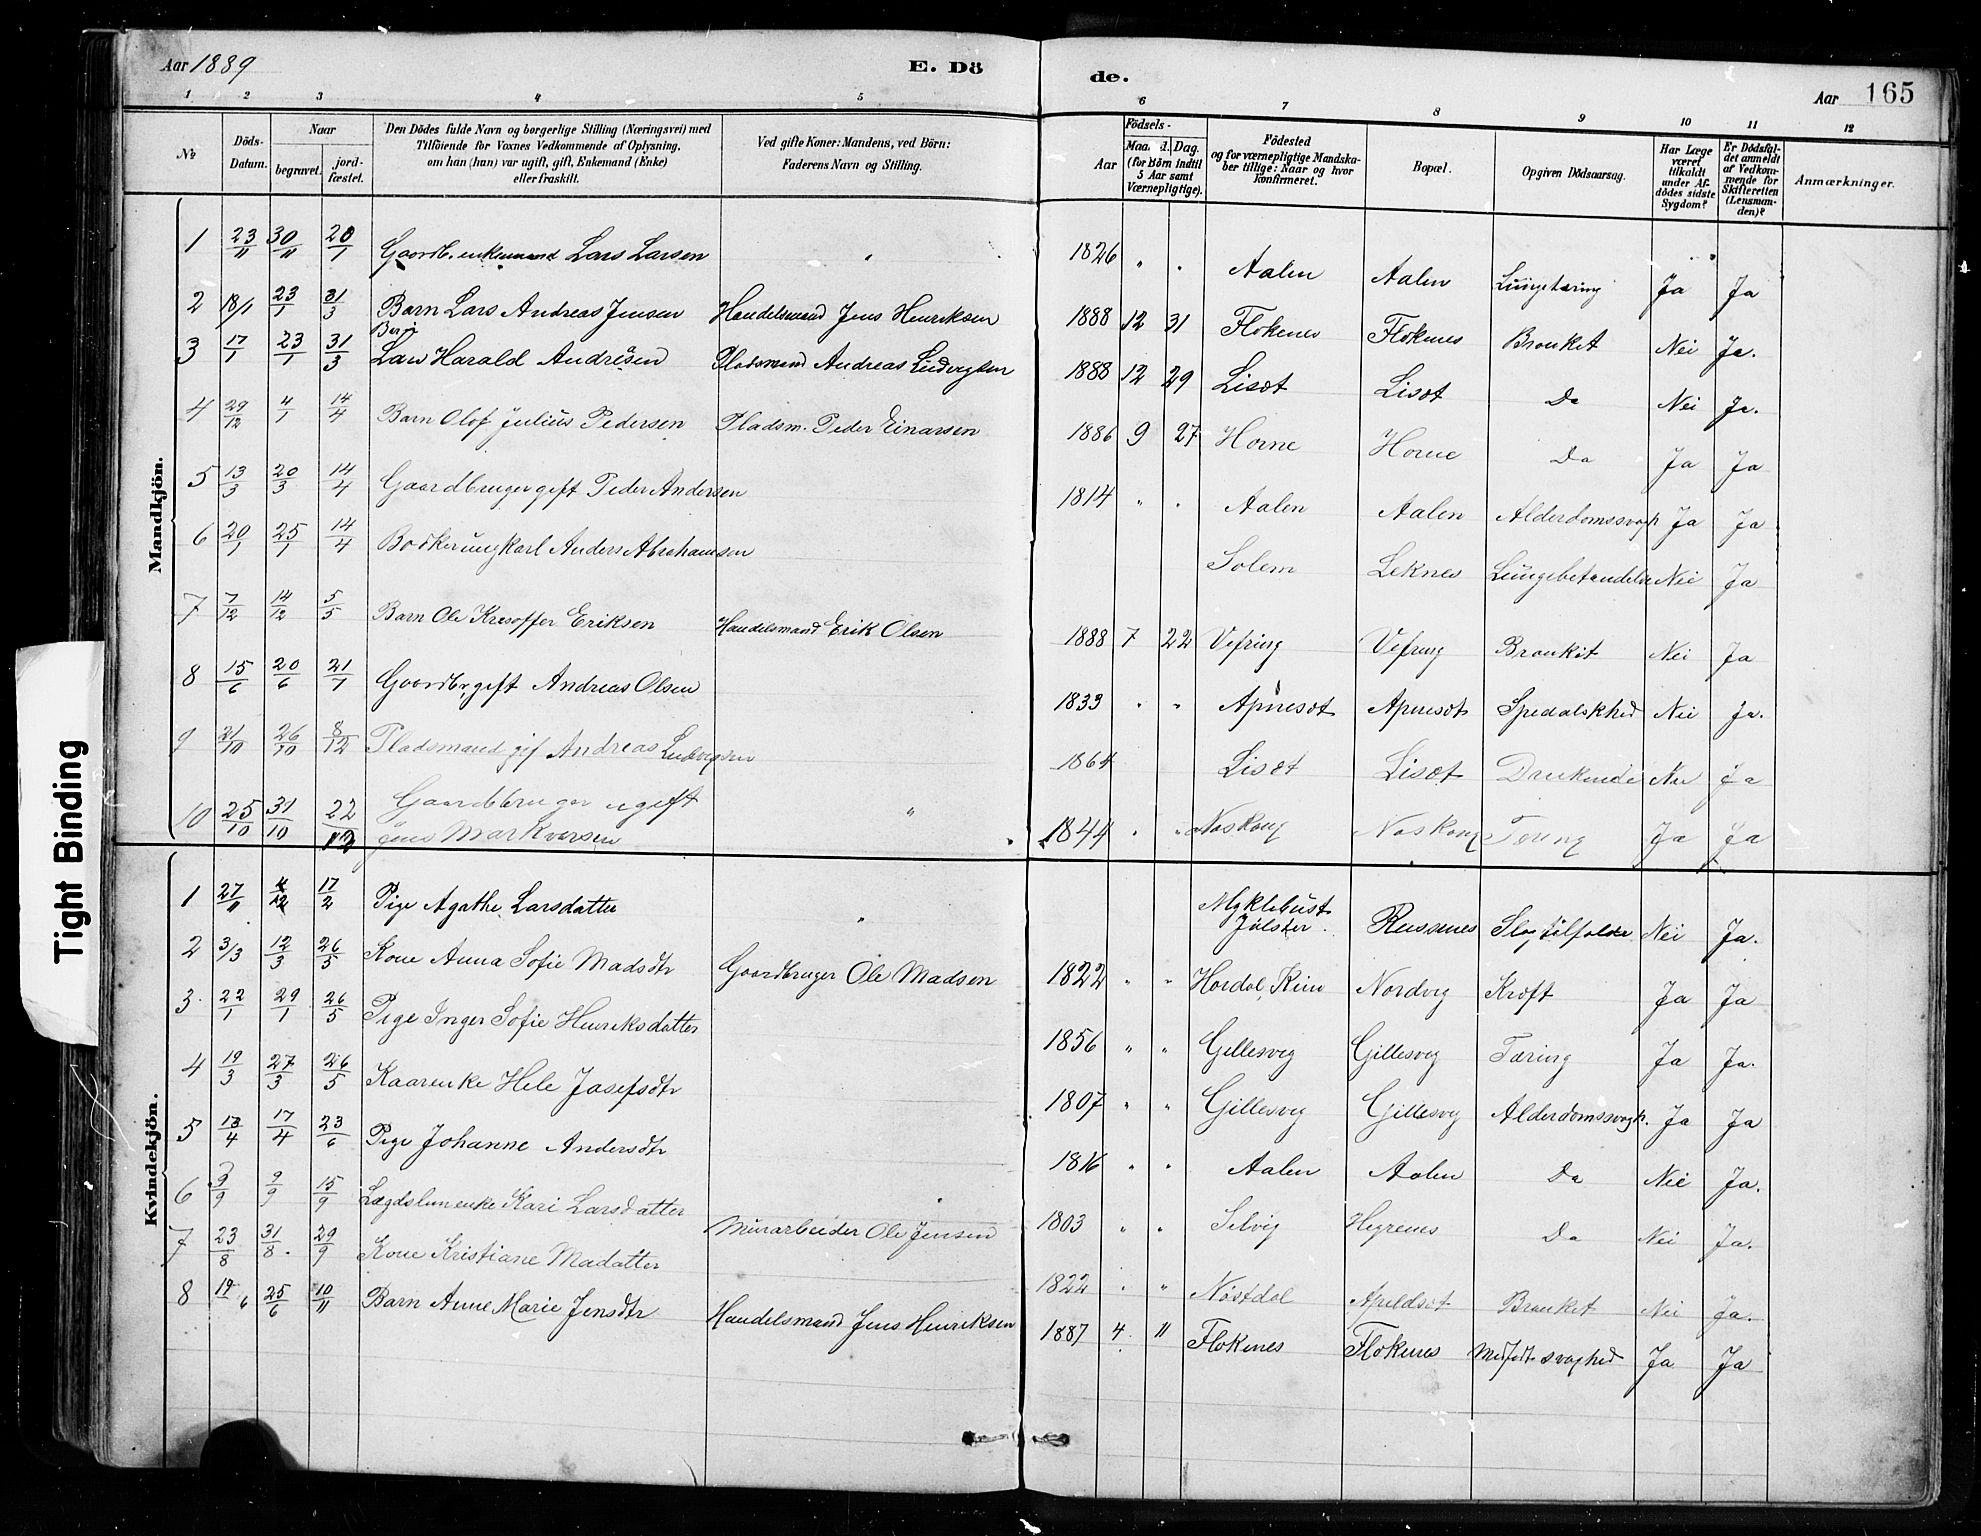 Aar 1889 E. Dö
de. Aar 165
1 2 3 4 5 6 7 8 9 10 11 12
№ Döds-Datum. Naar begravet. jord-fæstet. Den Dödes fulde Navn og borgerlige Stilling (Næringsvei) med Tilföiende for Voxnes Vedkommende af Oplysning, om han (hun) var ugift, gift, Enkemand (Enke) eller fraskilt. Ved gifte Koner: Mandens, ved Börn: Faderens Navn og Stilling. Aar Födsels- Maaned. Dag. (for Börn indtil 5 Aar samt Værnepligtige). Födested og for værnepligtige Mandskaber tillige: Naar og hvor konfirmeret. Bopæl. Opgiven Dödsaarsag. Har Læge været tilkaldt under Afdödes sidste Sygdom? Er Dödsfaldet anmeldt af Vedkommende for Skifteretten (Lensmanden)? Anmærkninger.
Mandkjön.
1 23/11 30/11 20/1 Gaardb. enkemand Lars Larsen " 1826 " " Aalen Aalen Lungetæring Ja Ja
2 18/1 23/1 31/3 Barn Lars Andreas Jensen Handelsmand Jens Henriksen 1888 12 31 Flokenes Flokenes Bronket Nei Ja.
3 17/1 23/1 31/3 Barn Lars Harald Andresen Pladsmand Andreas Ludvigsen 1888 12 29 Lisæt Lisæt Do Nei Ja.
4 29/12 4/1 14/4 Barn Olof Julius Pedersen Pladsm. Peder Einarsen 1886 9 27 Horne Horne Do Ja Ja
5 13/3 20/3 14/4 Gaardbruger gift Peder Andersen 1814 " " Aalen Aalen Alderdomssvagh Ja Ja
6 20/1 25/1 14/4 Bödkerungkarl Anders Abrahamsen Solem Leknes Lungebetændelse Nei Ja
7 7/12 14/12 5/5 Barn Ole Kristoffer Eriksen Handelsmand Erik Olsen 1888 7 22 Vefring Vefring Bronkit Nei Ja
8 15/6 20/6 21/7 Gaardbr. gift Andreas Olsen 1833 " " Apnesæt Apnesæt Spedalskhed Nei Ja.
9 21/10 26/10 8/12 Pladsmand gif Andreas Ludvigsen 1864 Lisæt Lisæt Drukende Nei Ja
10 25/10 31/10 22/12 Gaardbruger ugift Jens Markvorsen " 1844 " " Naskoug Naskoug Tæring Ja Ja
Kvindekjön.
1 27/11 4/12 17/2 Pige Agathe Larsdatter " Myklebust Jölster. Russenes Slagtilfælde Nei Ja.
2 3/3 12/3 26/5 Kone Anna Sofie Madsdtr Gaardbruger Ole Madsen 1822 " " Hordal, Kinn Nordvig Kræft Ja Ja
3 22/1 29/1 26/5 Pige Inger Sofie Henriksdatter 1856 " " Gillesvig Gillesvig Tæring Ja Ja.
4 19/3 27/3 26/5 Kaarenke Hele Josefsdtr 1807 " " Gillesvig Gillesvig Alderdomssvagh. Ja Ja
5 13/4 17/4 23/6 Pige Johanne Andersdtr 1816 " " Aalen Aalen Do Nei Ja.
6 3/9 9/9 15/9 Lægdslem enke Kari Larsdatter " 1803 " " Selvig Hegrenes Do Nei Ja.
7 23/8 31/8 29/9 Kone Kristiane Madatter Murarbeider Ole Jensen 1822 " " Nöstdal Apeldsæt Bronket Nei Ja.
8 19/6 25/6 10/11 Barn Anne Marie Jensdtr Handelsmand Jens Henriksen 1887 4 11 Flokenes Flokenes Medfödt svaghed Ja Ja
Tight Binding